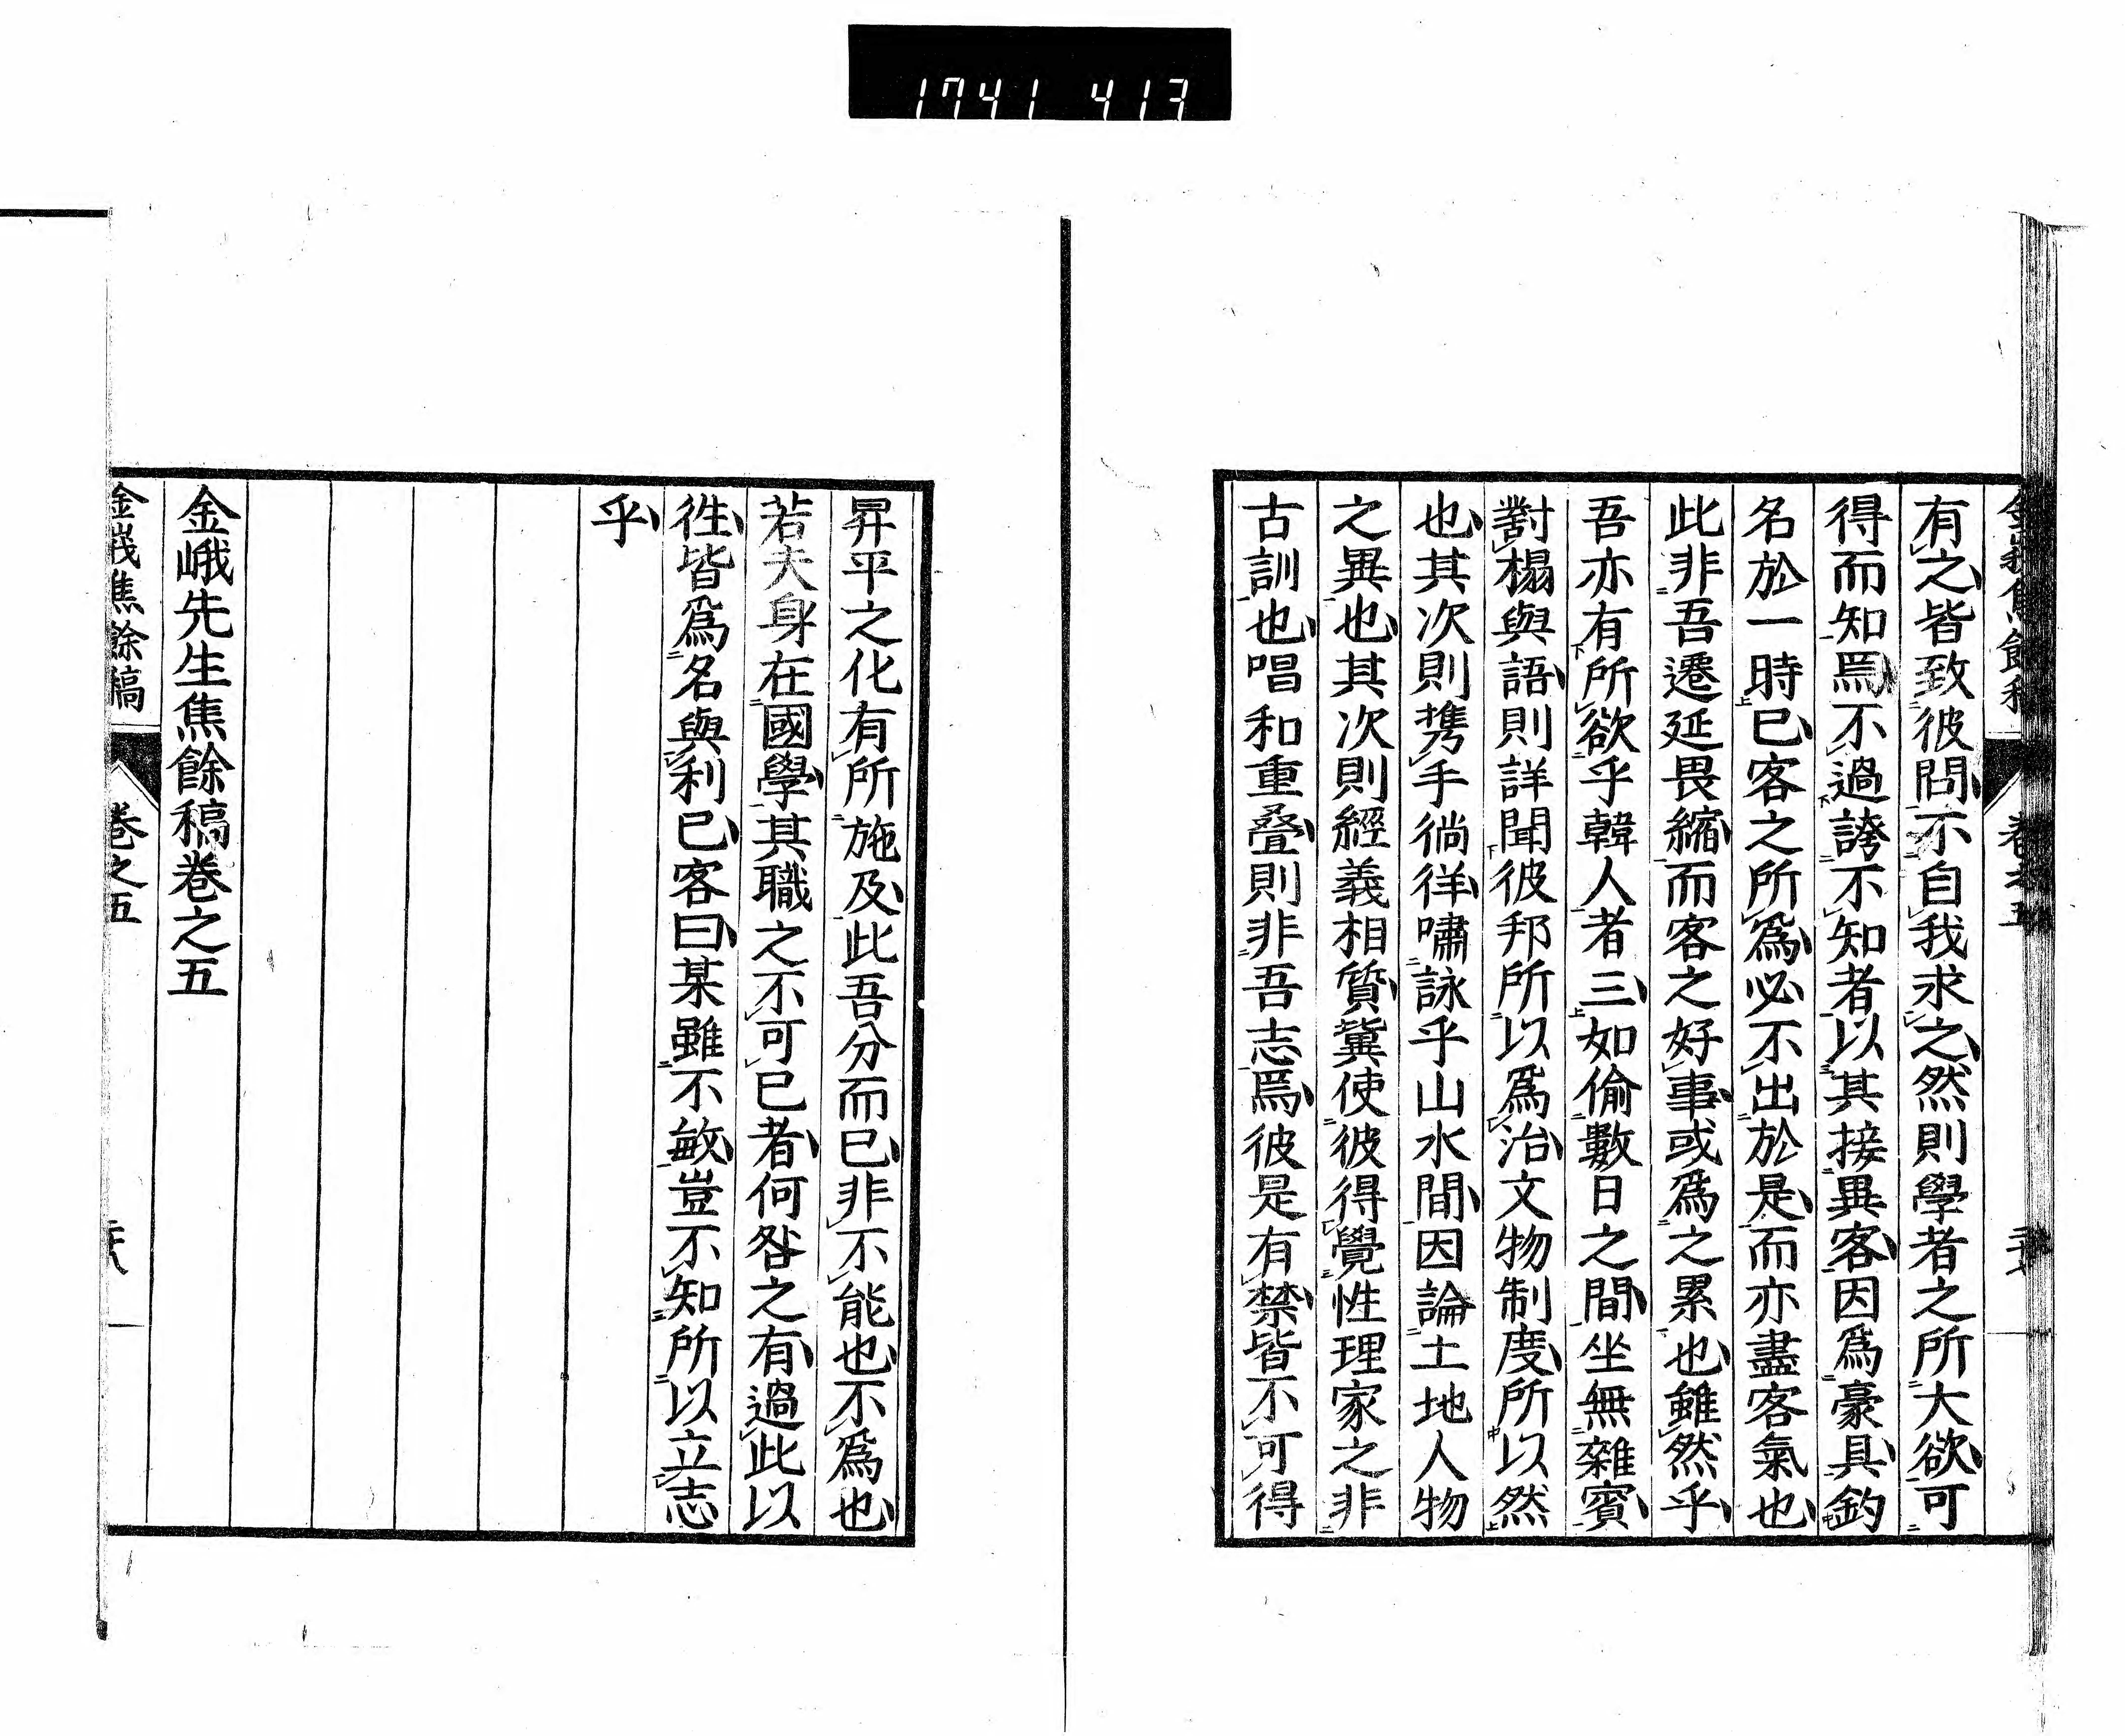 1741 413
有之皆致彼問不自我求之然則學者之所大欲可
得而知焉不過誇不知者以其接異客因爲豪具釣
名於一時已客之所爲必不出於是而亦盡客氣也
此非吾遷延畏縮而客之好事或爲之累也雖然乎
吾亦有所欲乎韓人者三如偷數日之間坐無雜賓
對榻與語則詳聞彼邦所以爲治文物制度所以然
也其次則携手徜徉嘯詠乎山水間因論土地人物
之異也其次則經義相質冀使彼得覺性理家之非
古訓也唱和重疊則非吾志焉彼是有禁皆不可得
昇平之化有所施及此吾分而已非不能也不爲也
若夫身在國學其職之不可已者何咎之有過此以
徃皆爲名與利已客曰某雖不敏豈不知所以立志
乎
金峨先生焦餘稿卷之五
金峨焦餘稿
卷之五